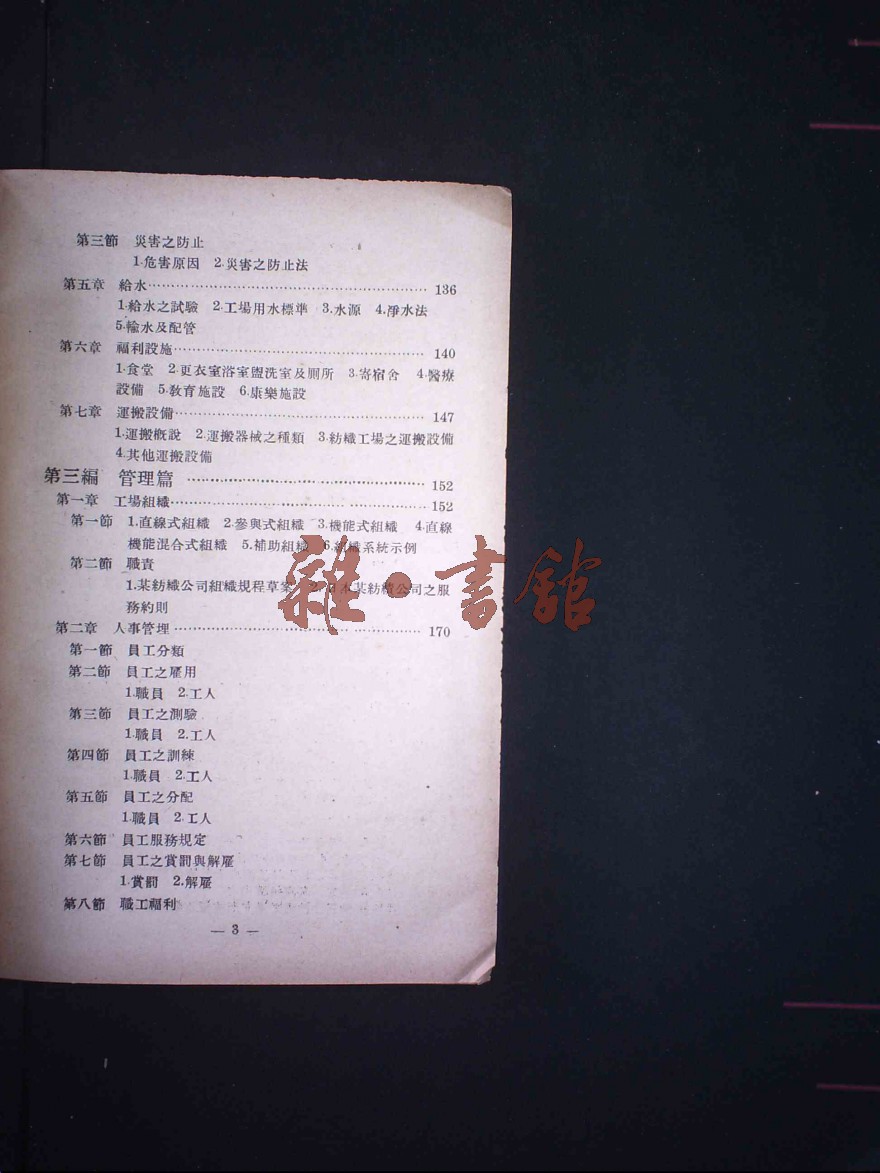 第三節 災害之防止
1.危害原因 2.災害之防止法
第五章 給水…………………………………………… 136
1.給水之試驗 2.工場用水標準 3.水源 4.淨水法
5.輸水及配管
第六章 福利設施……………………………………… 140
1.食堂 2.更衣室浴室盥洗室及厠所 3.寄宿舍 4.醫療
設備 5.敎育施設 6.康樂施設
第七章 運搬設備……………………………………… 147
1.運搬槪說 2.運搬器械之種類 3.紡織工場之運搬設備
4.其他運搬設備
第三編 管理篇 ……………………………………… 152
第一章 工場組織……………………………………… 152
第一節 1.直線式組織 2.參與式組織 3.機能式組織 4.直線
機能混合式組織 5.補助組織 6.組織系統示例
第二節 職責
1.某紡織公司組織規程草案 2.日本某紡績公司之服
務約則
第二章 人事管理……………………………………… 170
第一節 員工分類
第二節 員工之雇用
1.職員 2.工人
第三節 員工之測驗
1.職員 2.工人
第四節 員工之訓練
1.職員 2.工人
第五節 員工之分配
1.職員 2.工人
第六節 員工服務規定
第七節 員工之賞罰與解雇
1.賞罰 2.解雇
第八節 職工福利
— 3 —
雜·書館